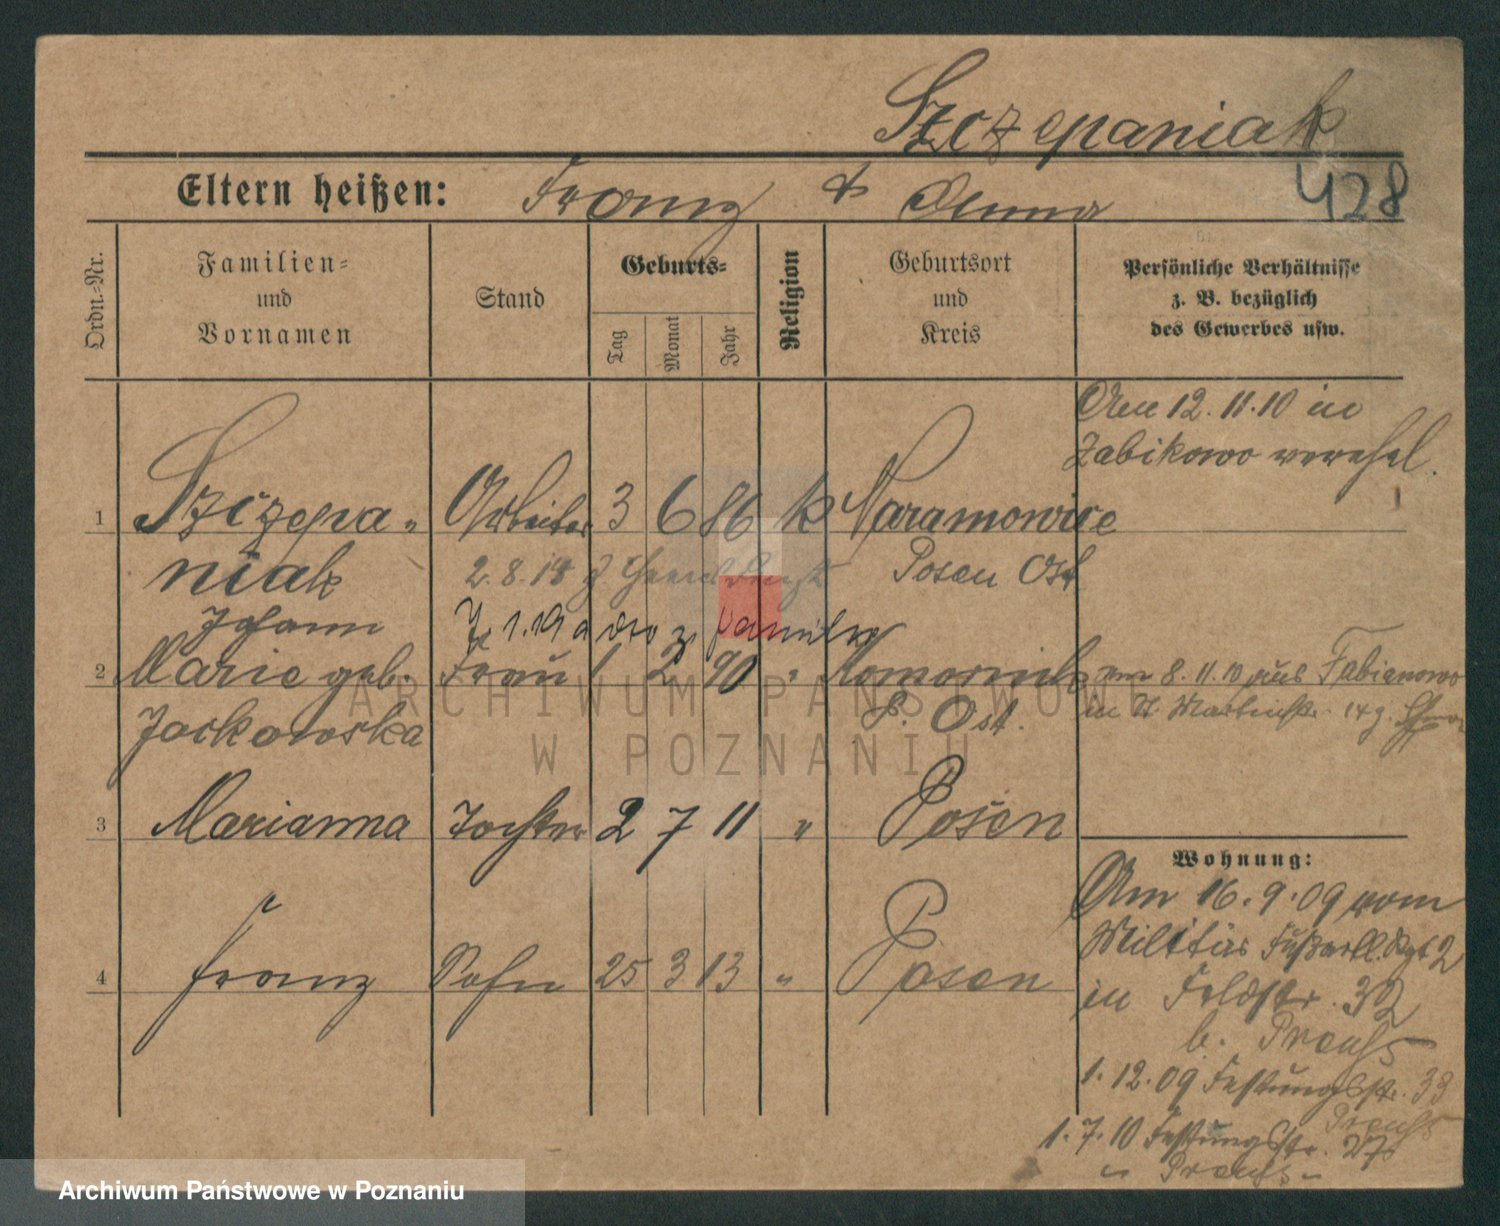 Szczepaniak
428
Eltern heißen: Franz & Anna
Ordn.-Nr.
Familien-
und
Vornamen
Stand
Geburts-
Tag
Monat
Jahr
Religion
Geburtsort
und
Kreis
Persönliche Verhältnisse
z. B. bezüglich
des Gewerbes usw.
Am 12.11.10 in
Zabikowo verehel.
1 Szczepa- Arbeiter 3 6 86 k Naramowice
niak 2.8.18 z. Posen Ost
Johann
1.19 a familie
2 Marie geb. Frau 1 2 90 " Komornik
Jackowska P. Ost.
am 8.11.10 aus Fabianowo
in St. Martinstr.
3 Marianna Tochter 2 7 11 " Posen
4 Franz Sohn 25 3 13 " Posen
Wohnung:
Am 16.9.09 vom
Militär Fußartl. Rgt 2
in Feldstr. 32
b. Preuß
1.12.09 Festungsstr. 33
Preuß
1.7.10 Festungsstr. 27
" Preuß "
ARCHIWUM PAŃSTWOWE
W POZNANIU
Archiwum Państwowe w Poznaniu